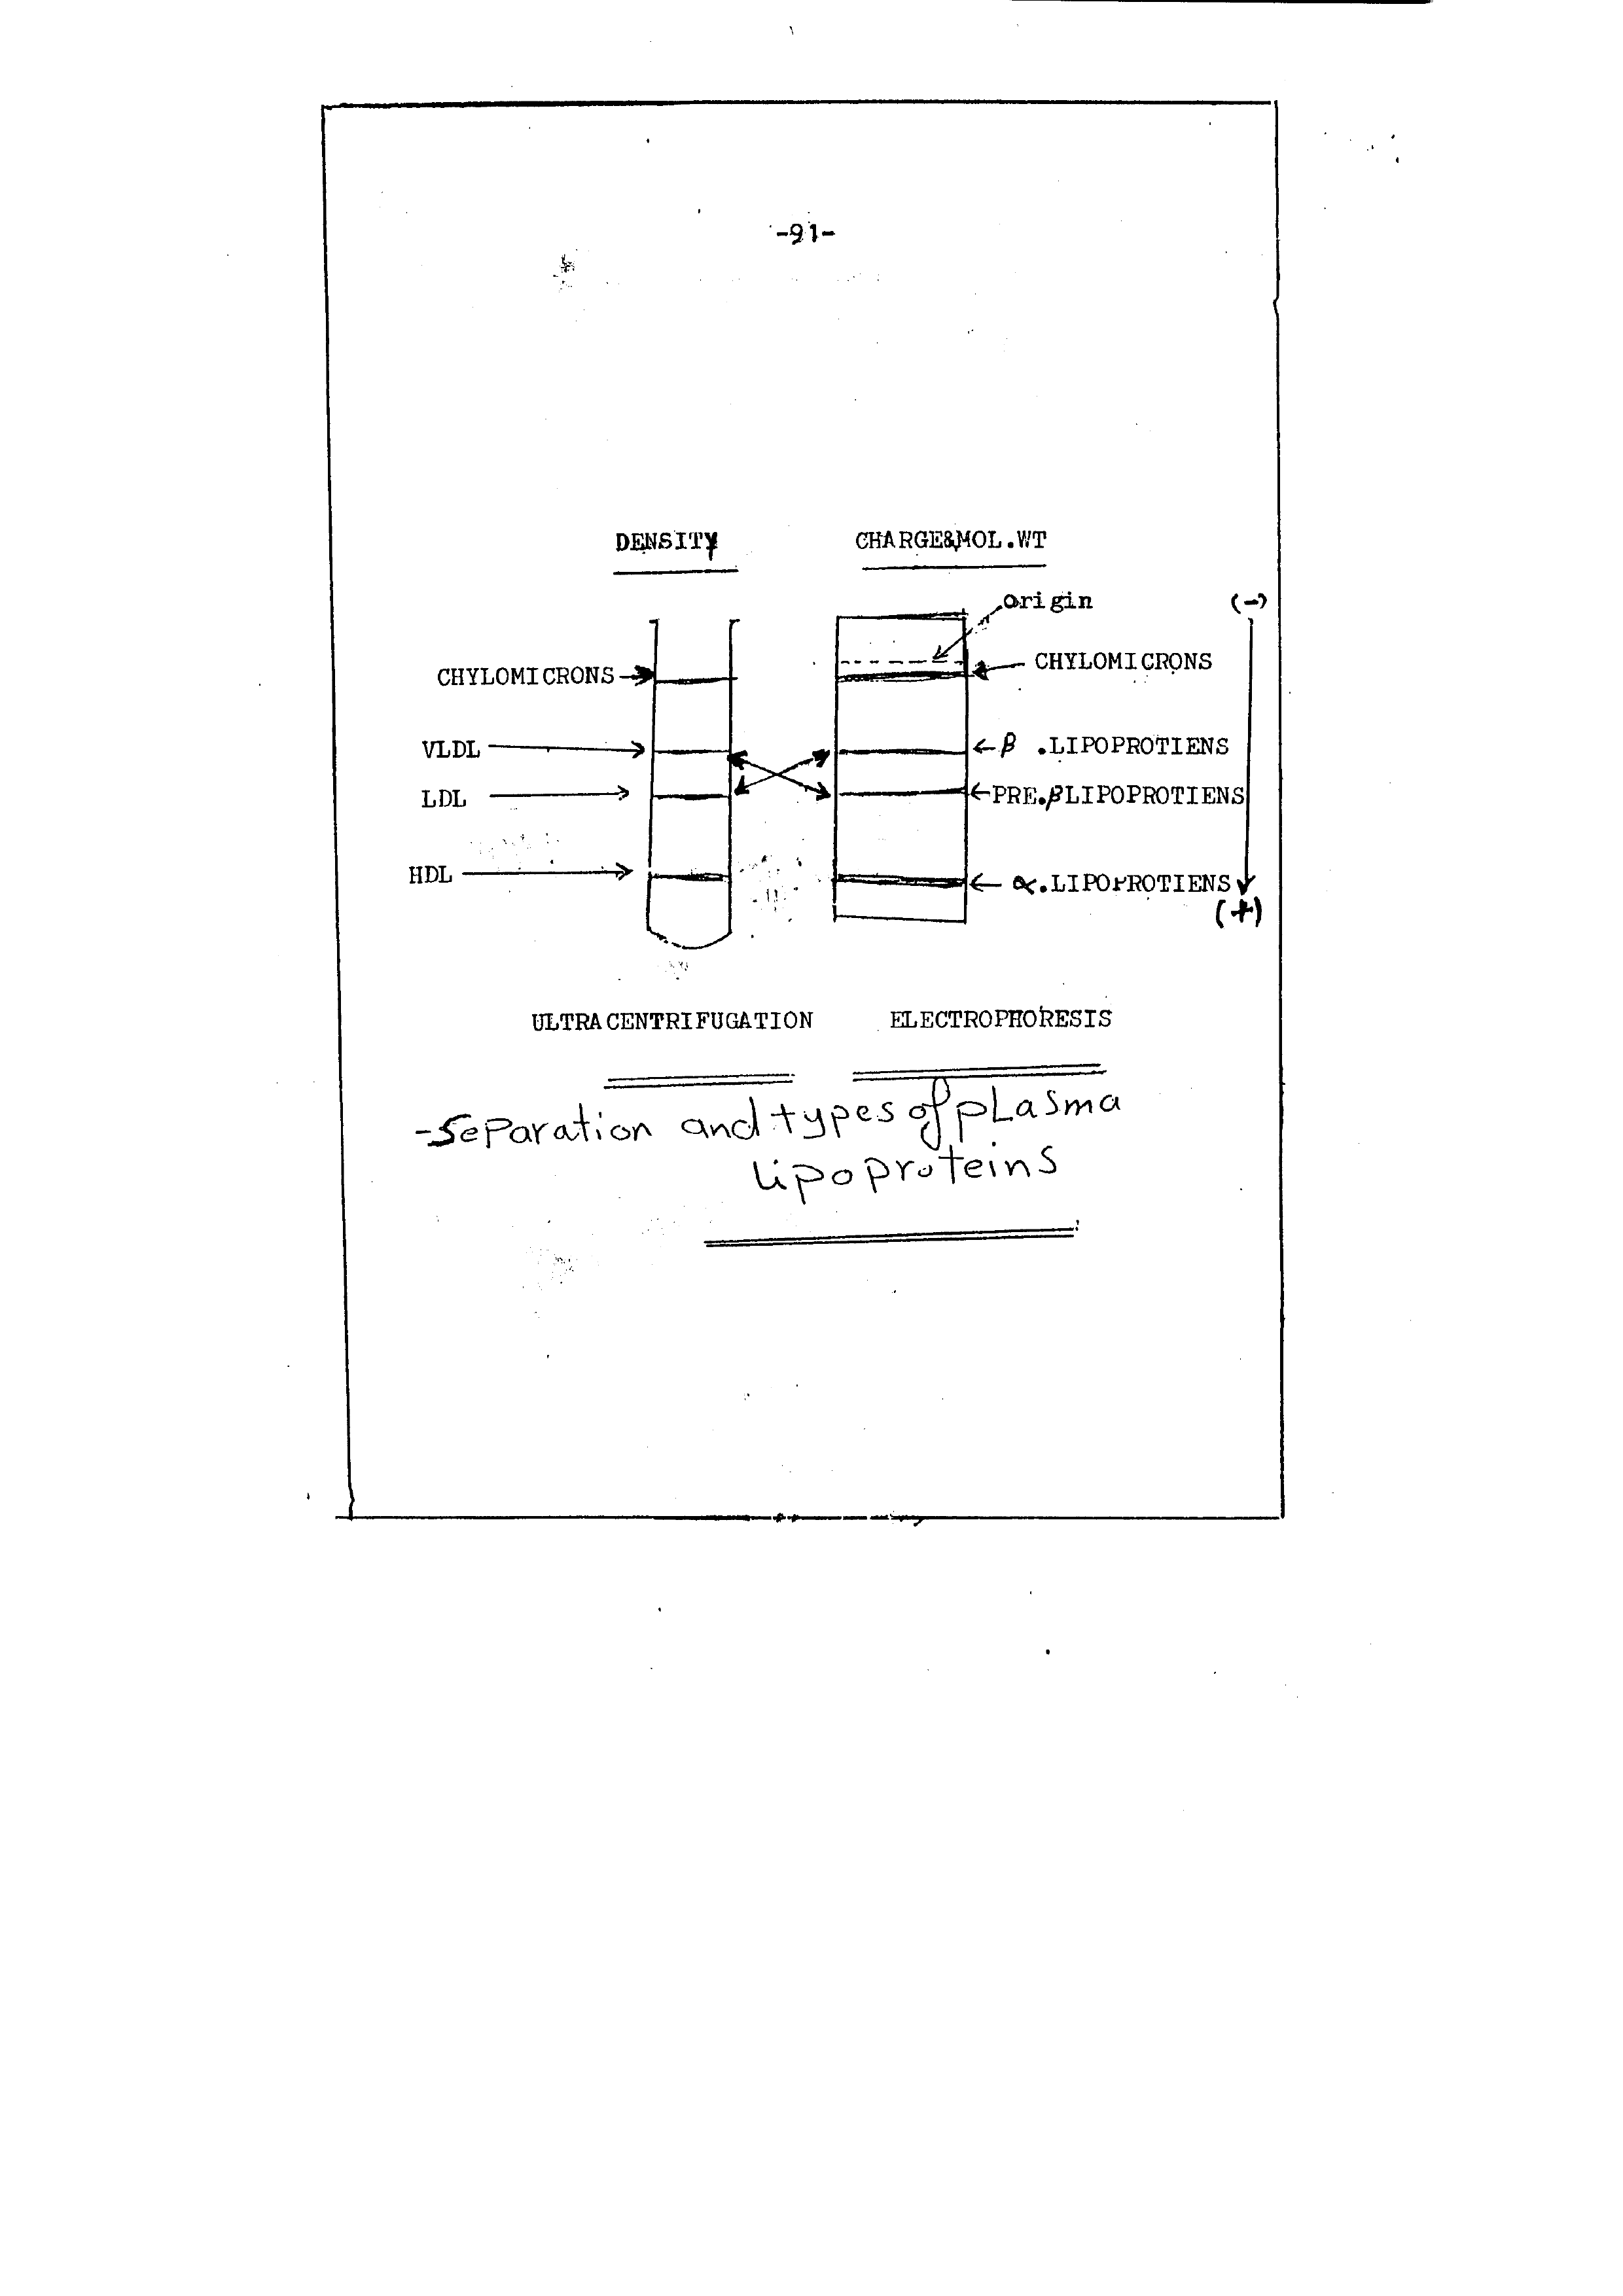 -91-
DENSITY
CHARGE&MOL.WT
origin
(-)
CHYLOMICRONS
CHYLOMICRONS
VLDL
β .LIPOPROTIENS
LDL
PRE.βLIPOPROTIENS
HDL
α.LIPOPROTIENS
(+)
ULTRACENTRIFUGATION
ELECTROPHORESIS
-Separation and types of plasma
lipoproteins